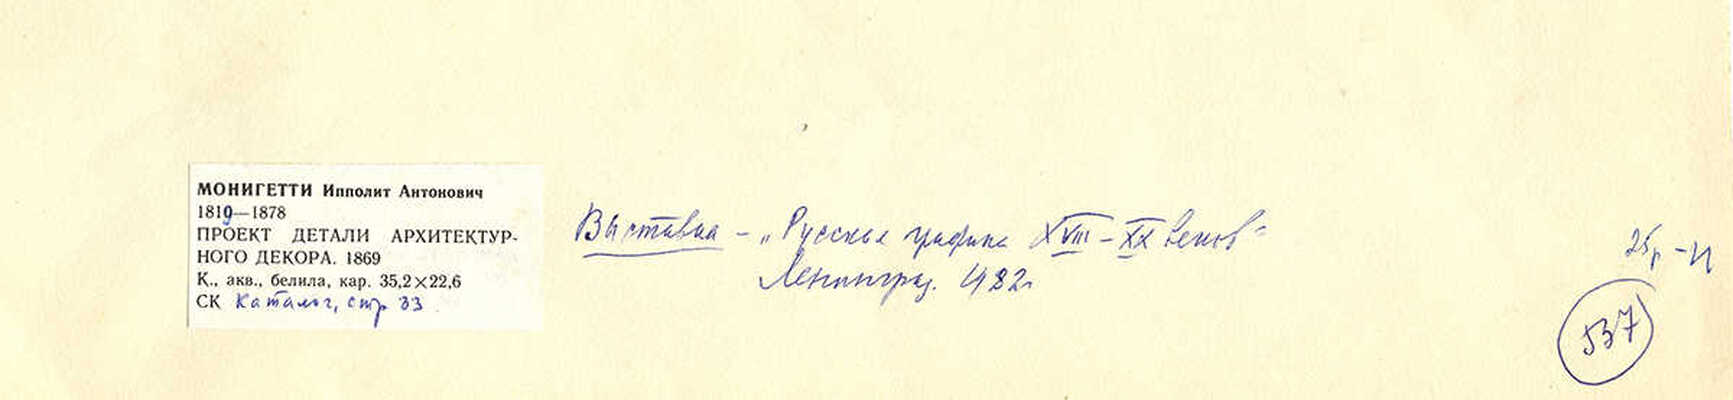 МОНИГЕТТИ Ипполит Антонович
1819—1878
ПРОЕКТ ДЕТАЛИ АРХИТЕКТУР-
НОГО ДЕКОРА. 1869
К., акв., белила, кар. 35,2×22,6
СК Каталог, стр 33
Выставка – „Русская графика XVIII – XX веков"
Ленинград. 1982г
25р –
537